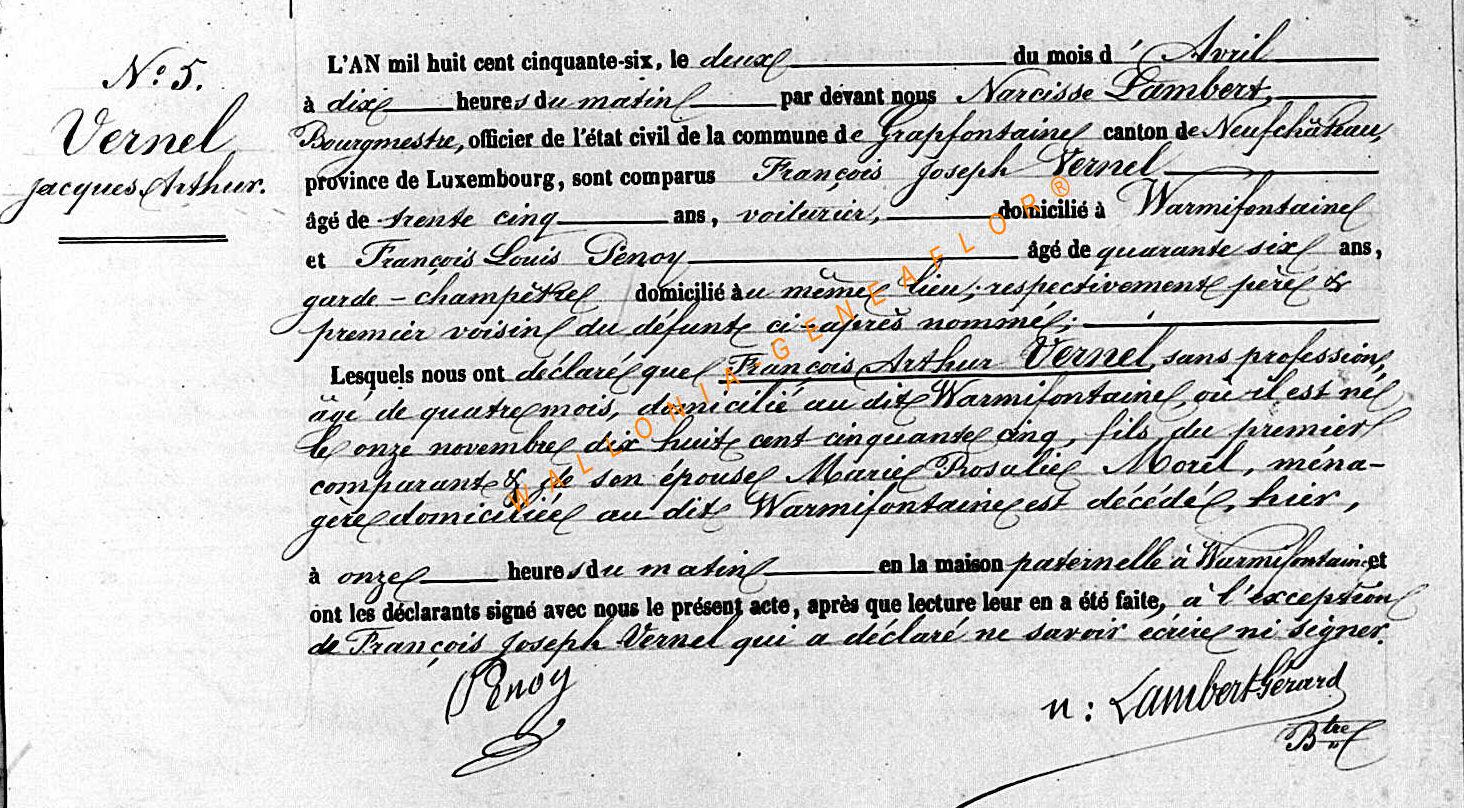 N.º 5.
Vernel,
Jacques Arthur.
L'AN mil huit cent cinquante-six, le deux du mois d' Avril
à dix heures du matin par devant nous Narcisse Lambert,
Bourgmestre, officier de l'état civil de la commune de Grapfontaine canton de Neufchâteau,
province de Luxembourg, sont comparus François Joseph Vernel
âgé de trente cinq ans, voiturier, domicilié à Warmifontaine
et François Louis Pénoy âgé de quarante six ans,
garde-champêtre domicilié au même lieu; respectivement père &
premier voisin du défunt ci-après nommé;
Lesquels nous ont déclaré que François Arthur Vernel, sans profession,
âgé de quatre mois, domicilié au dit Warmifontaine, où il est né
le onze novembre dix huit cent cinquante cinq, fils du premier
comparant & de son épouse Marie Rosalie Morel, ména-
gère domiciliée au dit Warmifontaine est décédé, hier,
à onze heures du matin en la maison paternelle à Warmifontaine et
ont les déclarants signé avec nous le présent acte, après que lecture leur en a été faite, à l'exception
de François Joseph Vernel qui a déclaré ne savoir écrire ni signer.
Pénoy
n: Lambert Gérard
Btre
WALLONIA-GENEAFLOR®